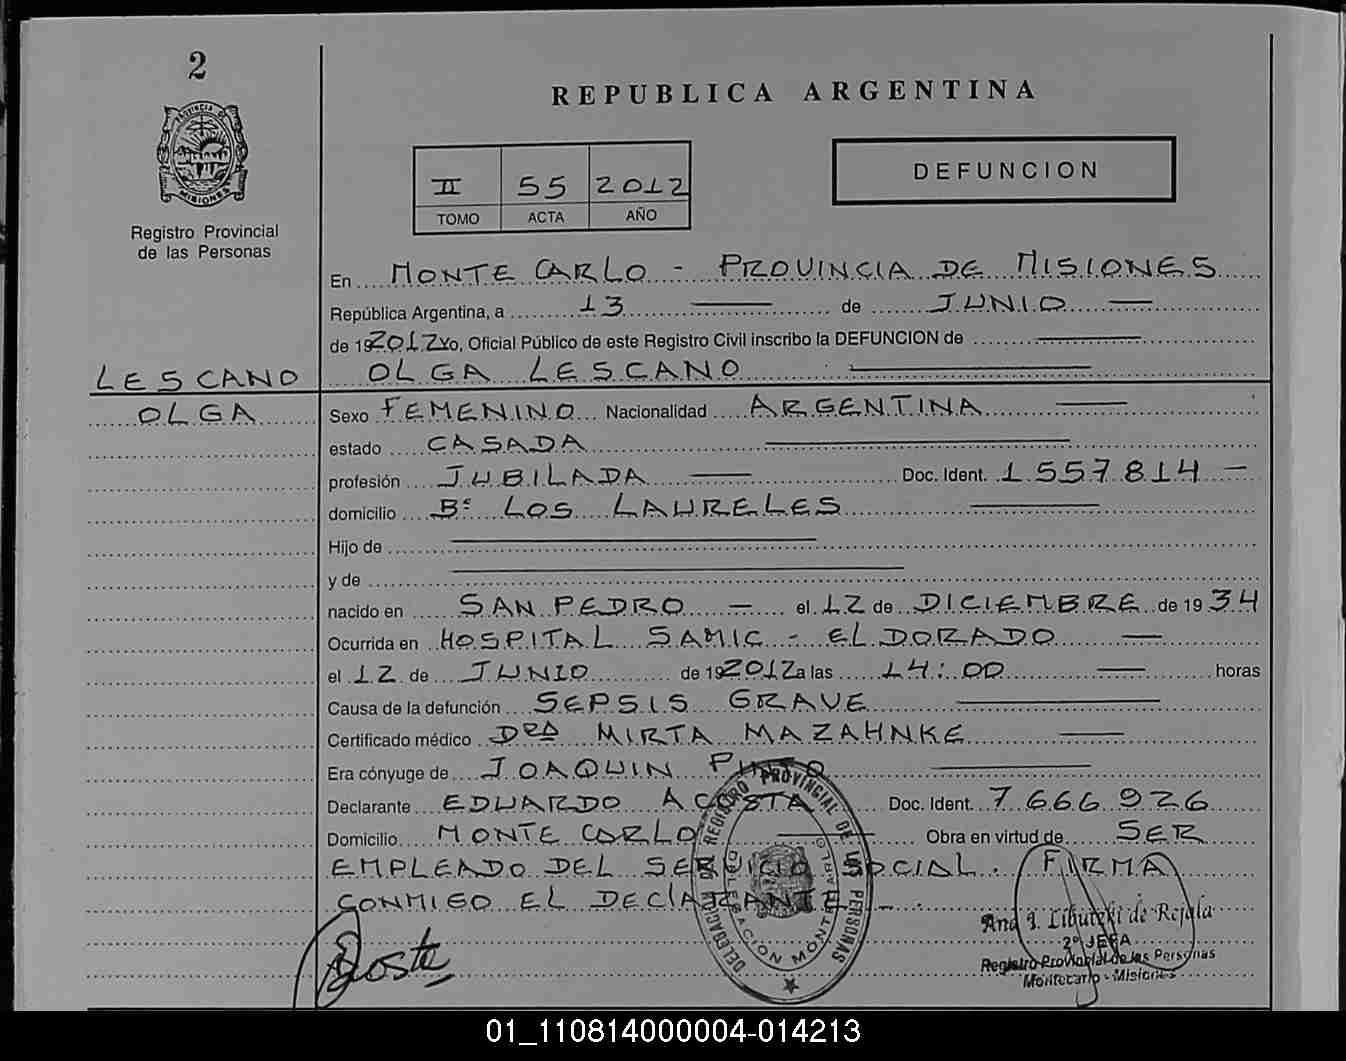 2
PROVINCIA DE
MISIONES
Registro Provincial
de las Personas
REPUBLICA ARGENTINA
II 55 2012
TOMO ACTA AÑO
DEFUNCION
En MONTE CARLO - PROVINCIA DE MISIONES
República Argentina, a 13 de JUNIO
de 192012 Yo, Oficial Público de este Registro Civil inscribo la DEFUNCION de
OLGA LESCANO
LESCANO
OLGA
Sexo FEMENINO Nacionalidad ARGENTINA
estado CASADA
profesión JUBILADA Doc. Ident. 1557814 -
domicilio Bº LOS LAURELES
Hijo de
y de
nacido en SAN PEDRO - el 12 de DICIEMBRE de 19 34
Ocurrida en HOSPITAL SAMIC - ELDORADO
el 12 de JUNIO de 192012 a las 14:00 horas
Causa de la defunción SEPSIS GRAVE
Certificado médico DRA MIRTA MAZAHNKE
Era cónyuge de JOAQUIN PINTO
Declarante EDUARDO ACOSTA Doc. Ident. 7 666 926
Domicilio MONTE CARLO Obra en virtud de SER
EMPLEADO DEL SERVICIO SOCIAL. FIRMA
CONMIGO EL DECLARANTE - .
DELEGACION DE REGISTRO PROVINCIAL DE LAS PERSONAS
DELEGACION MONTECARLO
Acosta
Ana I. Libutzki de Rejala
2º JEFA
Registro Provincial de las Personas
Montecarlo - Misiones
01_110814000004-014213